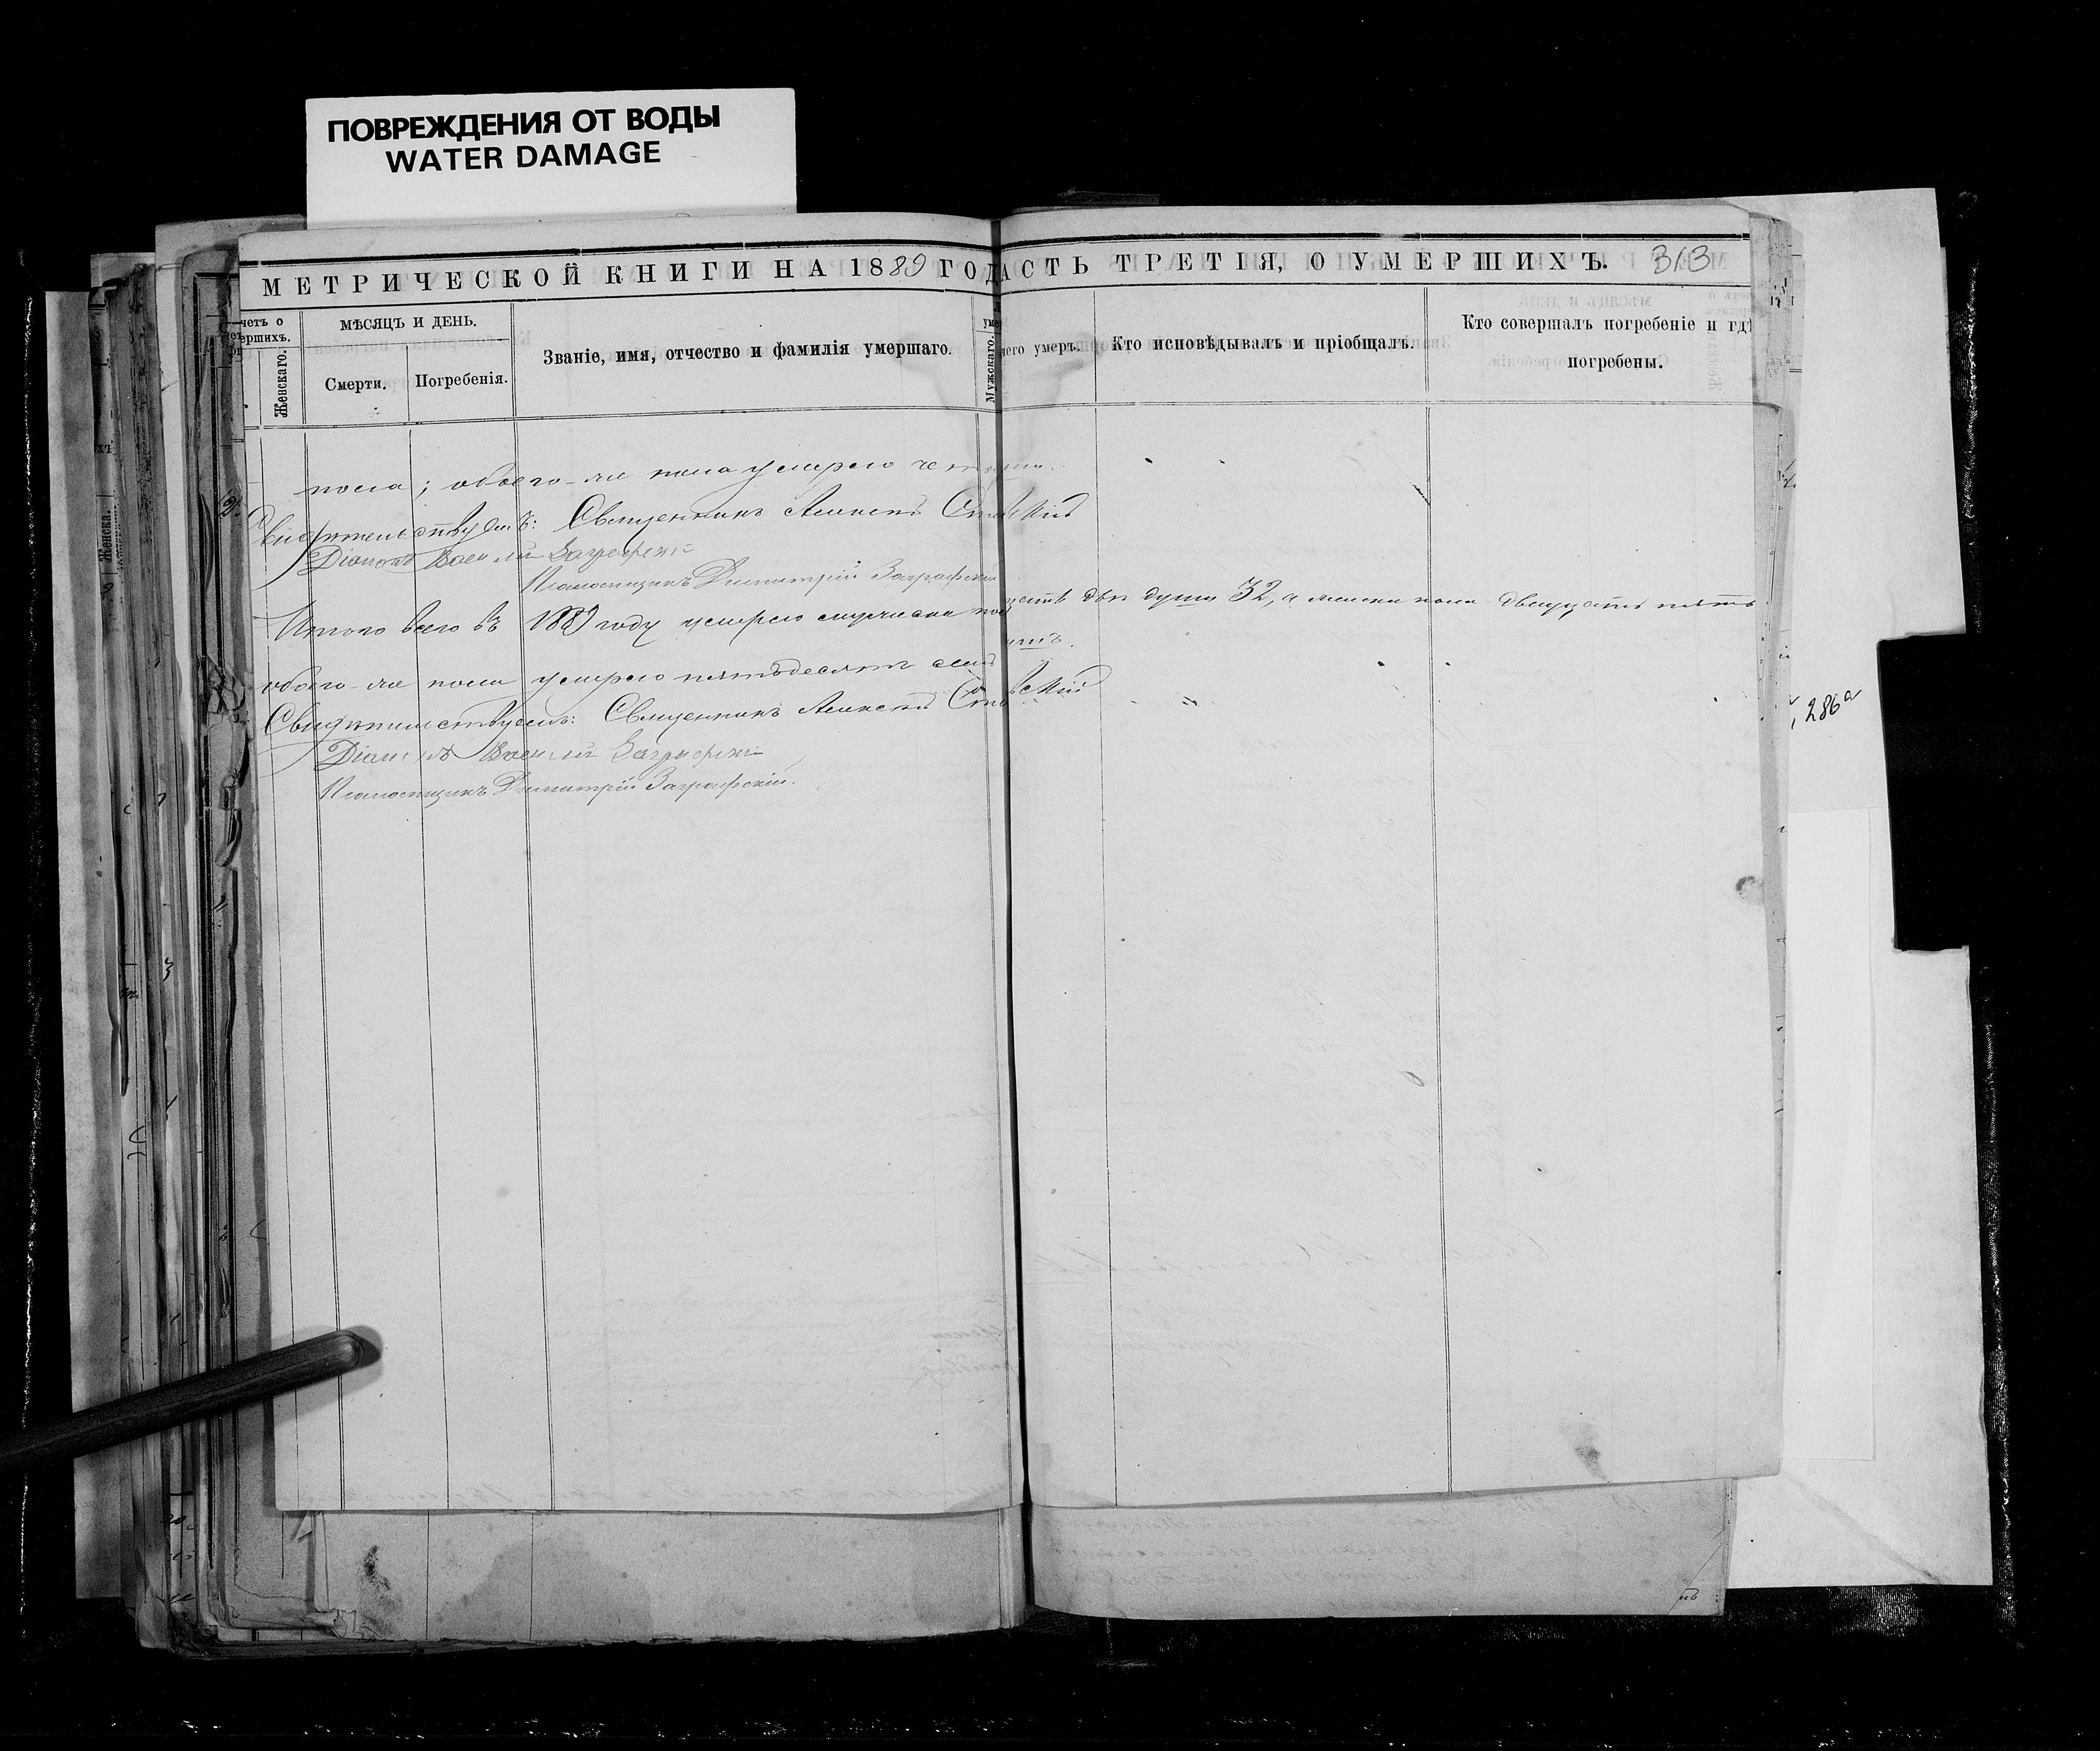 ПОВРЕЖДЕНИЯ ОТ ВОДЫ
WATER DAMAGE
МЕТРИЧЕСКОЙ КНИГИ НА 1889 ГОД
АСТЬ ТРЕТІЯ, О УМЕРШИХЪ. 313
четъ о
ершихъ.
Женскаго.
МѢСЯЦЪ И ДЕНЬ.
Смерти.
Погребенія.
Званіе, имя, отчество и фамилія умершаго.
уме
Мужскаго.
чего умеръ.
Кто исповѣдывалъ и пріобщалъ.
Кто совершалъ погребеніе и гдѣ
погребены.
пола; обоего-же пола умерло
Свидѣтельствуемъ: Священникъ Алексѣй
Діаконъ Василій
Псаломщикъ Димитрій Заграфскій
Итого всего въ 1889 году умерло мужеска пол
цать двѣ души 32, а женска пола двадцать пять
обоего-же пола умерло пятьдесятъ семь
душъ.
Свидѣтельствуемъ: Священникъ Алексѣй
Діаконъ Василій
Псаломщикъ Димитрій Заграфскій.
286а